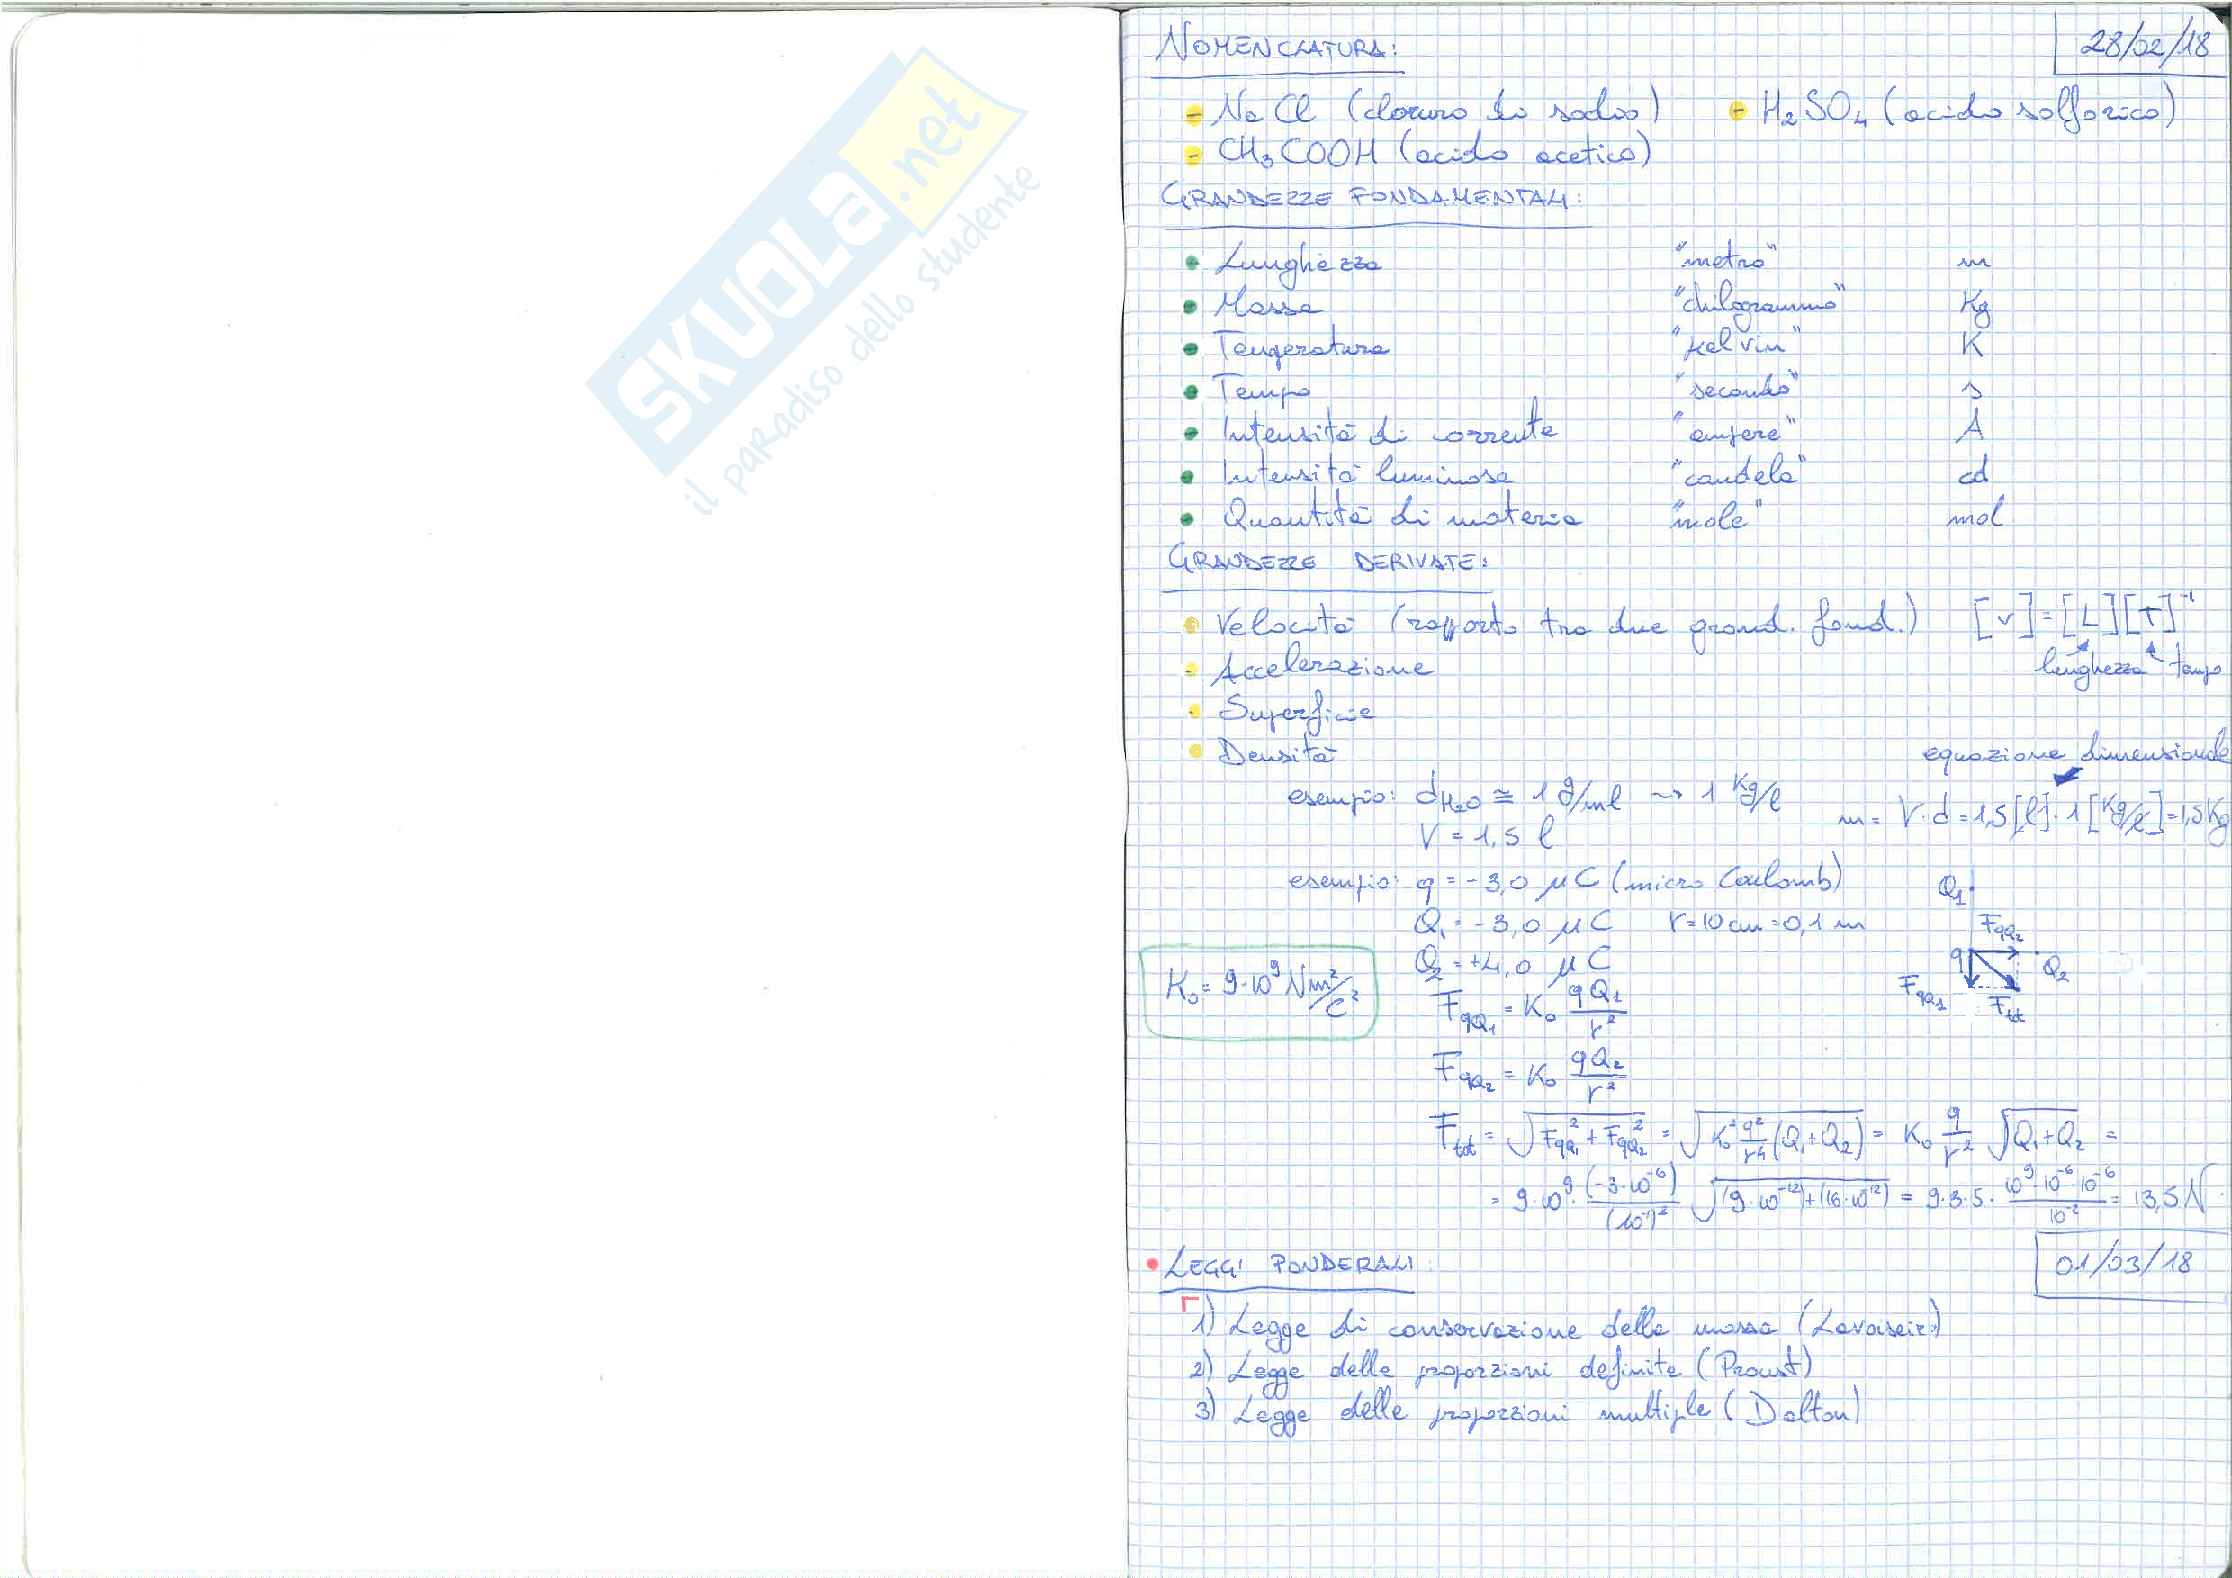 SKUOLA.net
il paradiso dello studente
NOMENCLATURA: 28/02/18
- NaCl (cloruro di sodio) - H₂SO₄ (acido solforico)
- CH₃COOH (acido acetico)
GRANDEZZE FONDAMENTALI:
• Lunghezza "metro" m
• Massa "chilogrammo" Kg
• Temperatura "kelvin" K
• Tempo "secondo" s
• Intensità di corrente "ampere" A
• Intensità luminosa "candela" cd
• Quantità di materia "mole" mol
GRANDEZZE DERIVATE:
• Velocità (rapporto tra due grand. fond.) [v]=[L][T]⁻¹
lunghezza tempo
- Accelerazione
• Superficie
• Densità
equazione dimensionale
esempio: dH₂O ≅ 1 g/ml → 1 Kg/l
m = V·d = 1,5[l]·1[Kg/l]=1,5Kg
V = 1,5 l
esempio: q = -3,0 μC (micro Coulomb) Q₁
Q₁ = -3,0 μC r=10cm=0,1 m FqQ₂
Q₂ = +4,0 μC q Q₂
K₀ = 9·10⁹ Nm²/C²
FqQ₁ = K₀ qQ₁/r² FqQ₁ Ftot
FqQ₂ = K₀ qQ₂/r²
Ftot = √(FqQ₁² + FqQ₂²) = √(K₀² q²/r⁴ (Q₁+Q₂)) = K₀ q/r² √(Q₁+Q₂) =
= 9·10⁹ · (-3·10⁻⁶)/(10⁻¹)² √((9·10⁻¹²)+(16·10⁻¹²)) = 9·3·5 · 10⁹·10⁻⁶·10⁻⁶/10⁻² = 13,5 N
• LEGGI PONDERALI: 01/03/18
1) Legge di conservazione della massa (Lavoiseir)
2) Legge delle proporzioni definite (Proust)
3) Legge delle proporzioni multiple (Dalton)